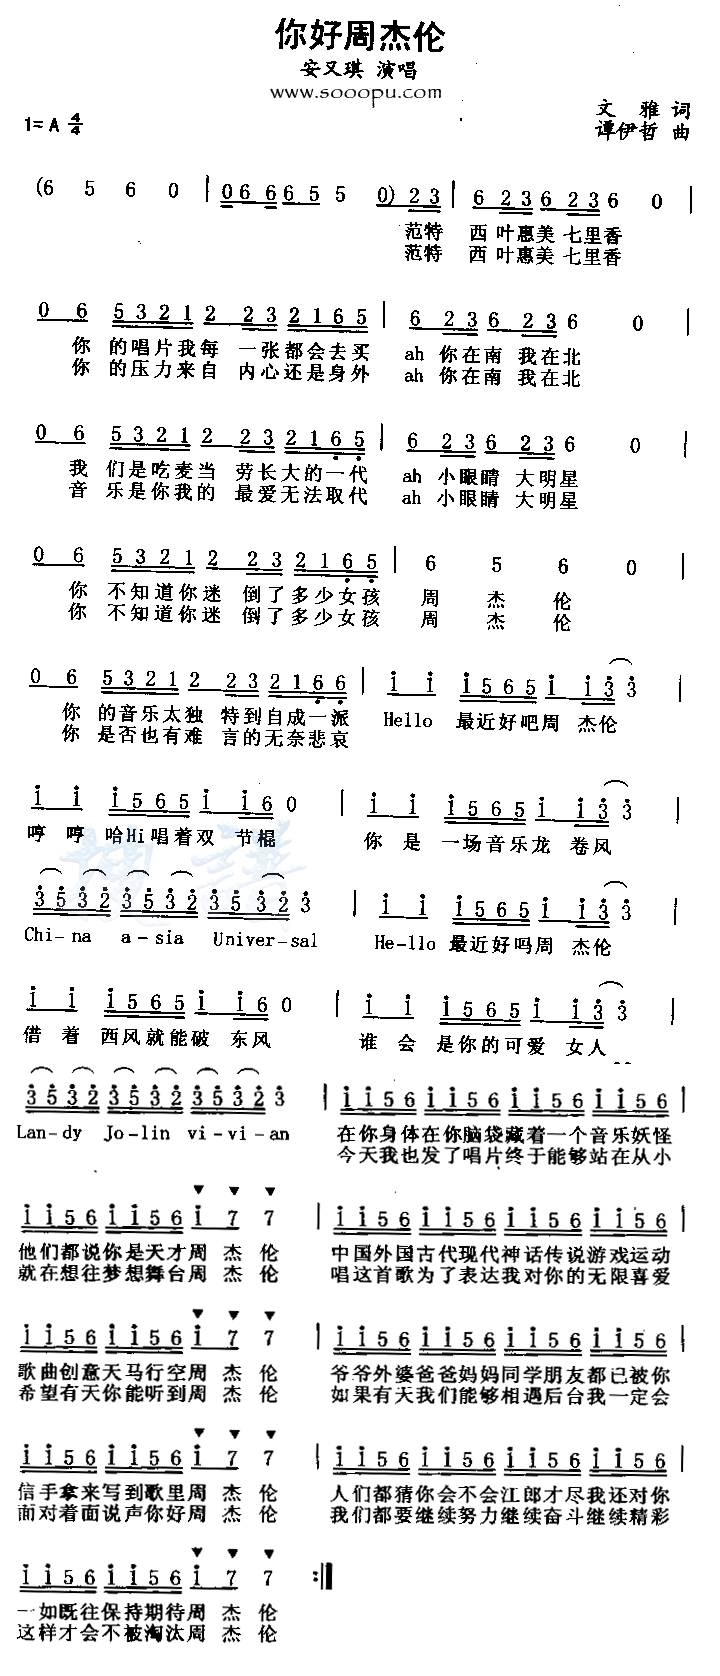 你好周杰伦
安又琪 演唱
www.sooopu.com
文 雅 词
1=A 4/4
谭伊哲 曲
(6 5 6 0 | 0 6 6 6 6 6 5 5 0) 2 3 | 6 2 3 6 2 3 6 0 |
范特 西 叶惠美 七里香
范特 西 叶惠美 七里香
0 6 5 3 2 1 2 2 2 3 2 1 6 5 | 6 2 3 6 2 3 6 0 |
你 的唱片我每 一张都会去买 ah 你在南 我在北
你 的压力来自 内心还是身外 ah 你在南 我在北
0 6 5 3 2 1 2 2 2 3 2 1 6 5 | 6 2 3 6 2 3 6 0 |
我 们是吃麦当 劳长大的一代 ah 小眼睛 大明星
音 乐是你我的 最爱无法取代 ah 小眼睛 大明星
0 6 5 3 2 1 2 2 2 3 2 1 6 5 | 6 5 6 0 |
你 不知道你迷 倒了多少女孩 周 杰 伦
你 不知道你迷 倒了多少女孩 周 杰 伦
0 6 5 3 2 1 2 2 2 3 2 1 6 6 | i i i 5 6 5 i i 3 3 |
你 的音乐太独 特到自成一派 Hello 最近好吧周 杰伦
你 是否也有难 言的无奈悲哀
i i i 5 6 5 i i 6 0 | i i i 5 6 5 i i 3 3 |
哼 哼 哈Hi唱着双 节棍 你 是 一场音乐龙 卷风
3 5 3 2 3 5 3 2 3 5 3 2 3 | i i i 5 6 5 i i 3 3 |
Chi-na a-sia Univer-sal He-llo 最近好吗周 杰伦
i i i 5 6 5 i i 6 0 | i i i 5 6 5 i i 3 3 |
借 着 西风就能破 东风 谁 会 是你的可爱 女人
3 5 3 2 3 5 3 2 3 5 3 2 3 | i i 5 6 i i 5 6 i i 5 6 i i 5 6
Lan-dy Jo-lin vi-vi-an 在你身体在你脑袋藏着一个音乐妖怪
今天我也发了唱片终于能够站在从小
i i 5 6 i i 5 6 i 7 7 | i i 5 6 i i 5 6 i i 5 6 i i 5 6 |
他们都说你是天才周 杰 伦 中国外国古代现代神话传说游戏运动
就在想往梦想舞台周 杰 伦 唱这首歌为了表达我对你的无限喜爱
i i 5 6 i i 5 6 i 7 7 | i i 5 6 i i 5 6 i i 5 6 i i 5 6 |
歌曲创意天马行空周 杰 伦 爷爷外婆爸爸妈妈同学朋友都已被你
希望有天你能听到周 杰 伦 如果有天我们能够相遇后台我一定会
i i 5 6 i i 5 6 i 7 7 | i i 5 6 i i 5 6 i i 5 6 i i 5 6 |
信手拿来写到歌里周 杰 伦 人们都猜你会不会江郎才尽我还对你
面对着面说声你好周 杰 伦 我们都要继续努力继续奋斗继续精彩
i i 5 6 i i 5 6 i 7 7 :||
一如既往保持期待周 杰 伦
这样才会不被淘汰周 杰 伦